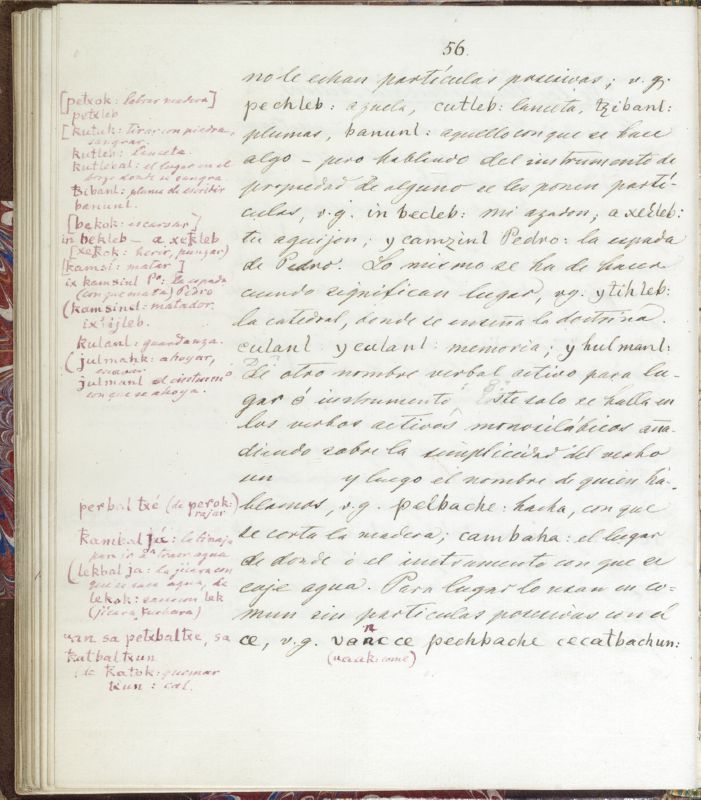 56.
no le echan partículas posesivas; v.g.
pechleb: azuela, cutleb: lanceta, tzibanl:
plumas, banunl: aquello con que se hace
algo – pero hablando del instrumento de
propiedad de alguno se les ponen partí-
culas, v.g. in becleb: mi azadon; a xekleb:
tu aguijon; y camzinl Pedro: la espada
de Pedro. Lo mismo se ha de hacer
cuando significan lugar, vg. ytihleb:
la catedral, donde se enseña la doctrina.
culanl y culanl: memoria; y hulmanl:
De otro nombre verbal activo para lu-
gar ó instrumento Este solo se halla en
los verbos activos monosilábicos aña-
diendo sobre la simplicidad del verbo
un y luego el nombre de quien ha-
blamos, v.g. pelbache: hacha, con que
se corta la madera; cambaha: el lugar
de donde ó el instrumento con que se
coje agua. Para lugar lo usan en co-
mun sin partículas posesivas con á
ce, v.g. vance pechbache cecatbachun:
(vaak: come)
[petxok: labrar madera]
petxleb
[kutuk: tirar con piedra,
sangrar
kutleb: lanceta.
kutlebal: el lugar en el
brazo donde se sangra
tzibanl: pluma de escribir
banunl.
[bekok: escarvar]
in bekleb – a xekleb
[xekok: herir, punzar)
[kamsi: matar]
ix kamsinl Po: la espada
(con que mata) Pedro
(kamsinel: matador.
ix tijleb.
kulanl: guardanza.
(julmank: ahoyar,
julmanl el instrumento
con que se ahoya.
perbal txé (de perok:)
rajar
kanibal já: la tinaja
para ir a traer agua
(lekbal ja: la jícara con
que se saca agua, de
lekok: sacar con lek
(jícara cuchara)
van sa petxbaltxe, sa
katbaltxun
de katok: quemar
txun: cal.